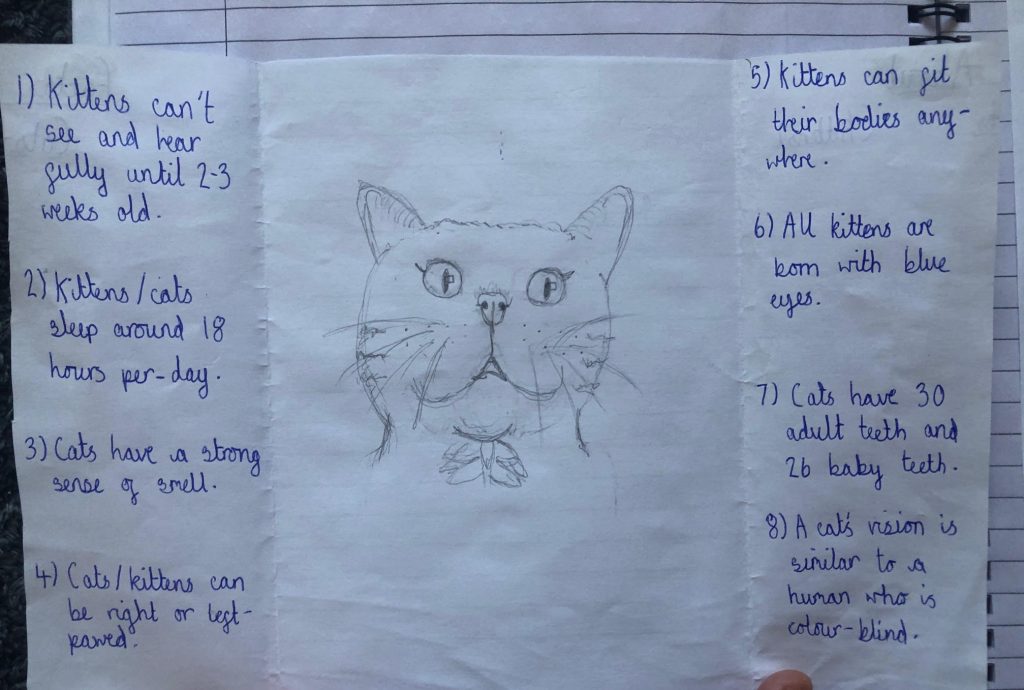 1) Kittens can't
see and hear
fully until 2-3
weeks old.
2) Kittens/cats
sleep around 18
hours per-day.
3) Cats have a strong
sense of smell.
4) Cats/kittens can
be right or left-
pawed.
5) Kittens can fit
their bodies any-
where.
6) All kittens are
born with blue
eyes.
7) Cats have 30
adult teeth and
26 baby teeth.
8) A cat's vision is
similar to a
human who is
colour-blind.